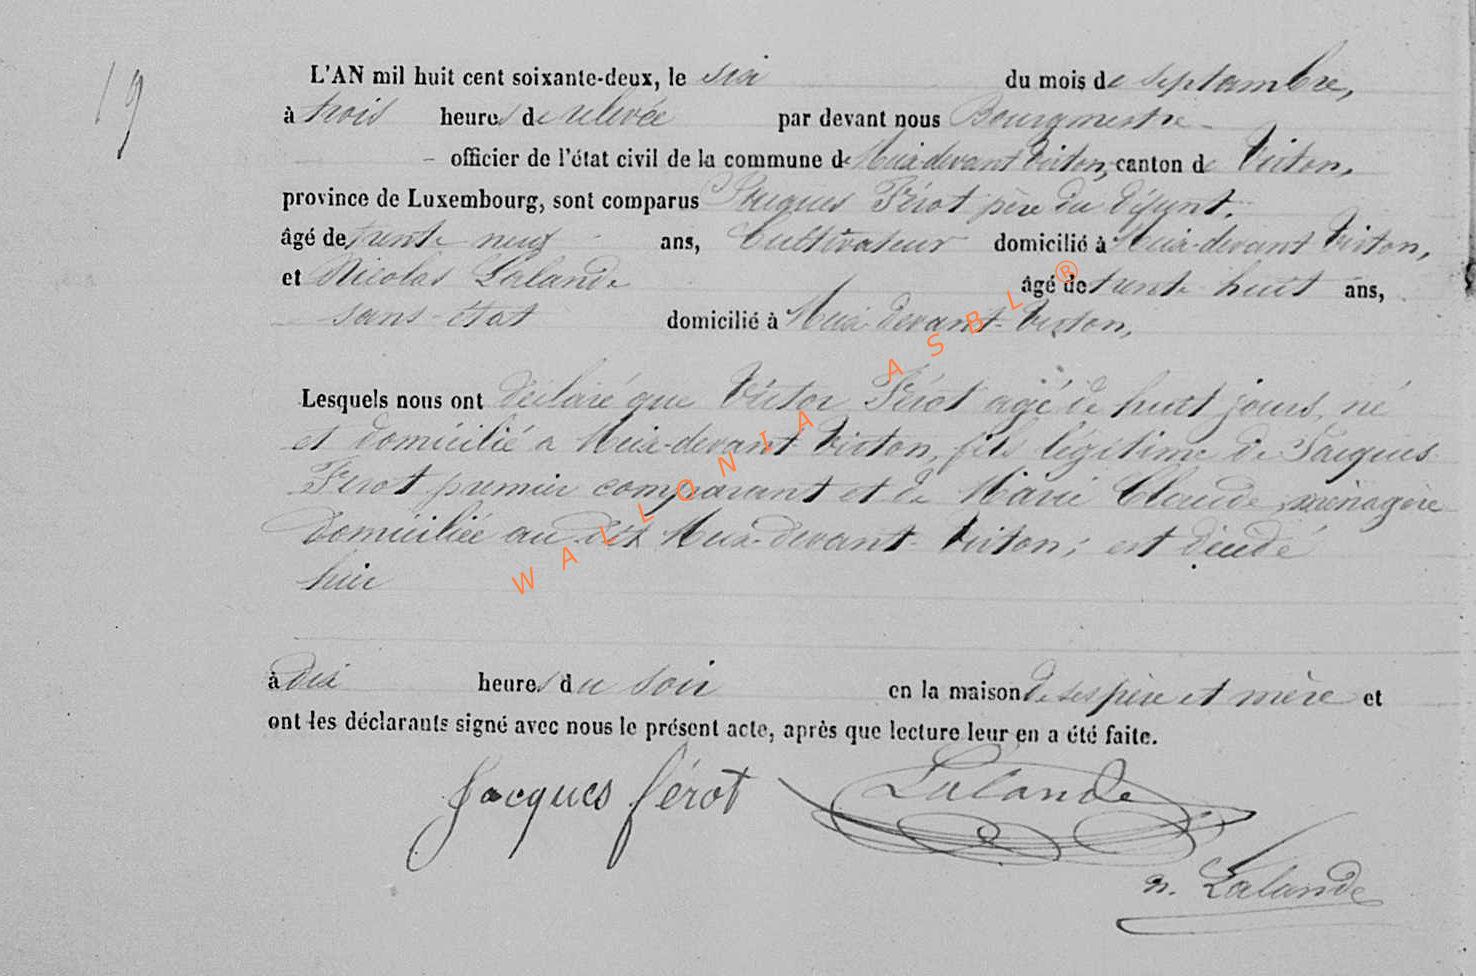 19
L'AN mil huit cent soixante-deux, le six du mois de septembre,
à trois heures de relevée par devant nous Bourgmestre
officier de l'état civil de la commune de Meix-devant Virton, canton de Virton,
province de Luxembourg, sont comparus Jacques Férot père du défunt,
âgé de trente neuf ans, Cultivateur domicilié à Meix-devant Virton,
et Nicolas Lalande âgé de trente huit ans,
sans état domicilié à Meix-devant-Virton,
Lesquels nous ont déclaré que Victor Férot agé de huit jours, né
et domicilié a Meix-devant Virton, fils légitime de Jacques
Ferot premier comparant et de Marie Claude, ménagère
domiciliée au dit Meix-devant Virton; est décédé
hier
à dix heures du soir en la maison de ses père et mère et
ont les déclarants signé avec nous le présent acte, après que lecture leur en a été faite.
Jacques férot Lalande
n. Lalande
WALLONIA ASBL ®